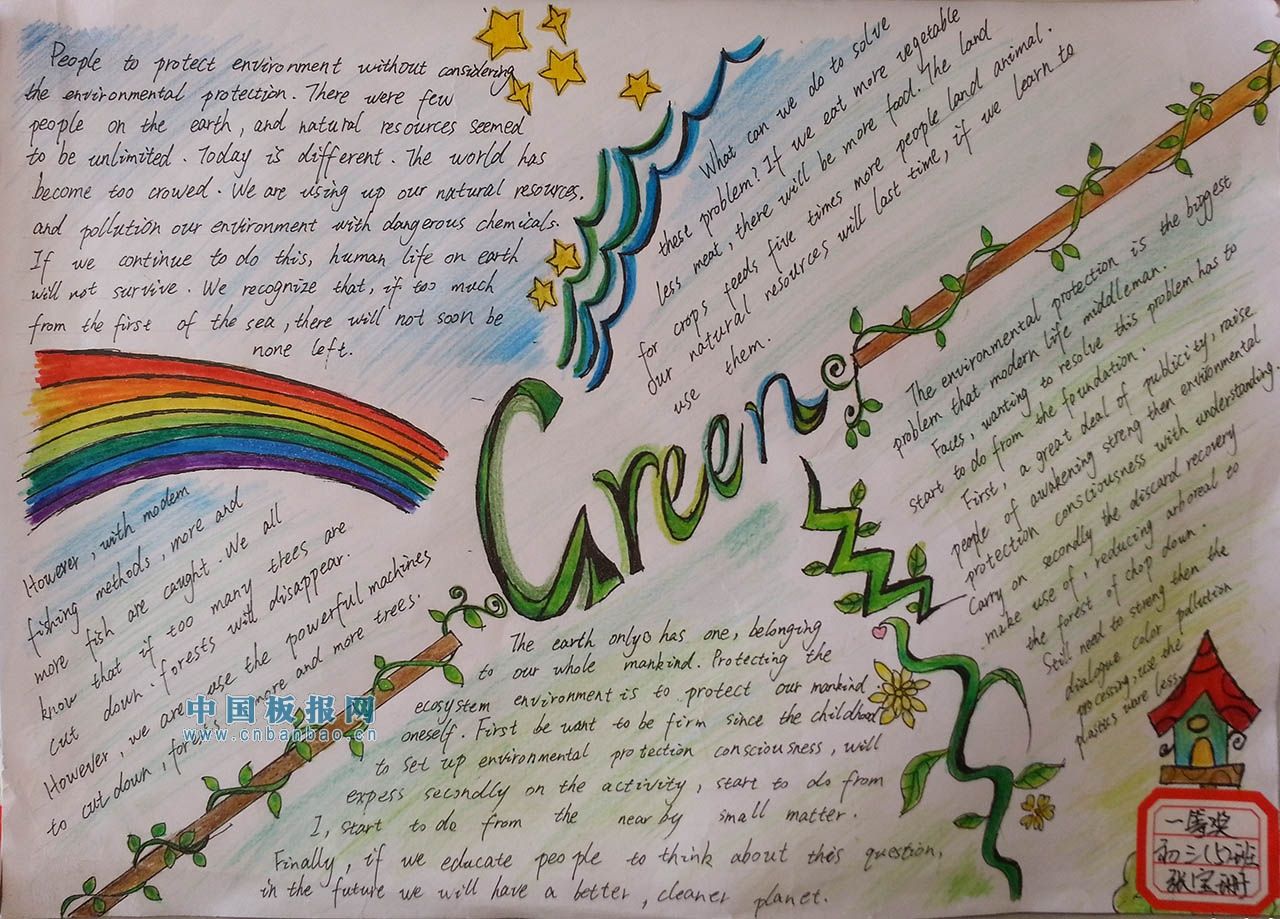 People to protect environment without considering
the environmental protection. There were few
people on the earth, and natural resources seemed
to be unlimited. Today is different. The world has
become too crowed. We are using up our natural resources.
and pollution our environment with dangerous chemicals.
If we continue to do this, human life on earth
will not survive. We recognize that, if too much
from the first of the sea, there will not soon be
none left.
What can we do to solve
these problem? If we eat more vegetable
less meat, there will be more food. The land
for crops feeds five times more people land animal.
our natural resources will last time, if we learn to
use them.
Green
The environmental protection is the biggest
problem that modern life middleman.
Faces, wanting to resolve this problem has to
start to do from the foundation.
First, a great deal of publicity, raise
people of awakening strong then environmental
protection consciousness with understanding.
Carry on secondly the discard recovery
make use of, reducing arboreal to
the forest of chop down.
Still need to strong then the
dialogue color pollution
processing, use the
plastics ware less.
However, with modem
fishing methods, more and
more fish are caught. We all
know that if too many trees are
cut down. forests will disappear.
However, we are use the powerful machines
to cut down, forests more and more trees.
The earth only has one, belonging
to our whole mankind. Protecting the
ecosystem environment is to protect our mankind
oneself. First be want to be firm since the childhood
to set up environmental protection consciousness, will
expess secondly on the activity, start to do from
I, start to do from the near by small matter.
Finally, if we educate people to think about this question,
in the future we will have a better, cleaner planet.
中国板报网
www.cnbanbao.cn
一等奖
初三(5)班
张宝珊